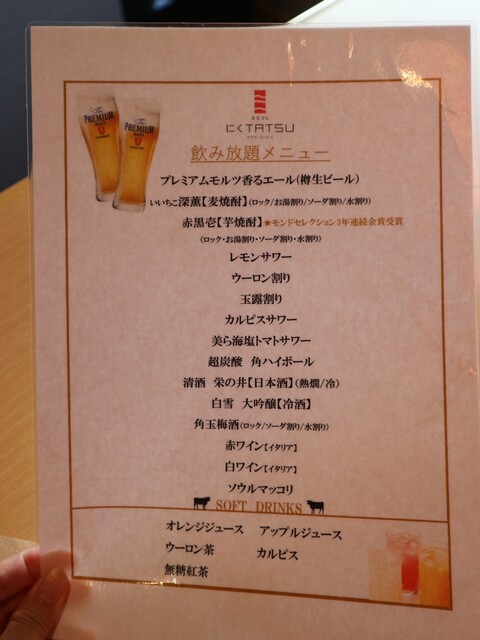 The PREMIUM MALT'S
The PREMIUM MALT'S
にくTATSU
飲み放題メニュー
プレミアムモルツ香るエール(樽生ビール)
いいちこ深薫【麦焼酎】(ロック/お湯割り/ソーダ割り/水割り)
赤黒壱【芋焼酎】★モンドセレクション3年連続金賞受賞
(ロック・お湯割り・ソーダ割り・水割り)
レモンサワー
ウーロン割り
玉露割り
カルピスサワー
美ら海塩トマトサワー
超炭酸 角ハイボール
清酒 栄の井【日本酒】(熱燗/冷)
白雪 大吟醸【冷酒】
角玉梅酒(ロック/ソーダ割り/水割り)
赤ワイン【イタリア】
白ワイン【イタリア】
ソウルマッコリ
SOFT DRINKS
オレンジジュース アップルジュース
ウーロン茶 カルピス
無糖紅茶